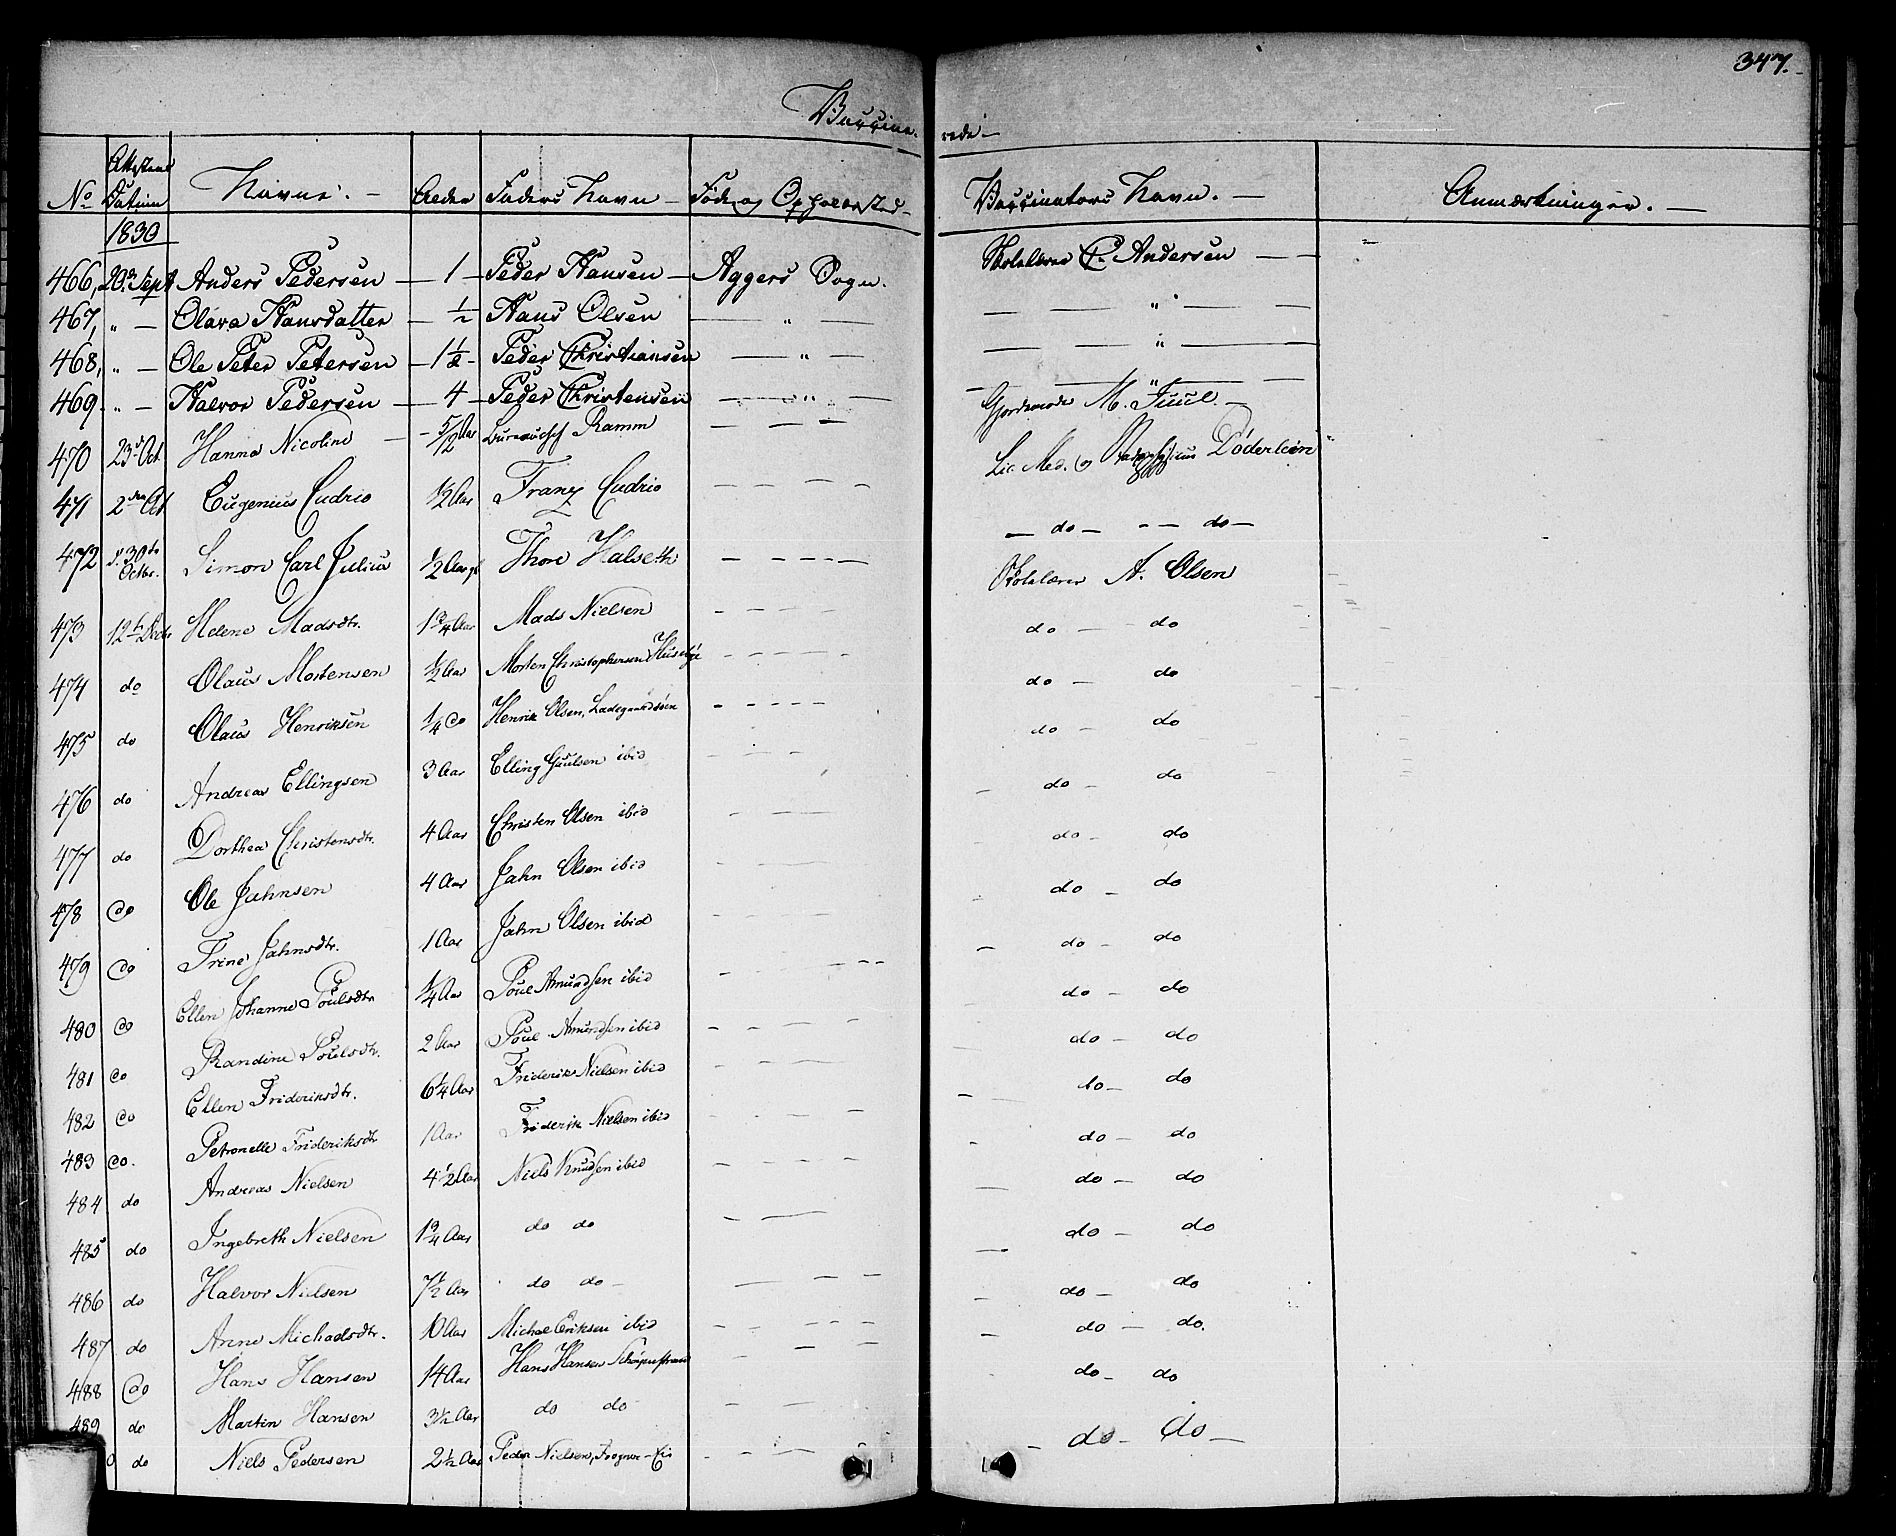 347.
Vaccine- rede
No Attestens Datum Navne. Alder Faders Navn Føde og Opholdssted Vaccinateurs Navn. Anmærkninger.
1830
466, 20de Sept Anders Pedersen 1 Peder Hansen Aggers Sogn. Skolelærer C. Andersen
467, " Olava Hansdatter 1/2 Hans Olsen " "
468, " Ole Peter Petersen 1 1/2 Peder Christiansen " "
469. " Halvor Pedersen 4 Peder Christensen " "
Gjordemoder M. Juul.
470 23d Oct. Hanna Nicoline 5/12 Aar Bureauchef Ramm Lic. Med. og Døderlein
471 2den Oct Eugenius Cudrio 1/2 Aar Franz Cudrio do do
472 d. 30te Octbr. Simon Carl Julius 1/2 Aar gl Thore Halseth Skolelærer A. Olsen
473 12te Decbr Helene Madsdtr. 1 3/4 Aar Mads Nielsen do do
474 do Olaus Mortensen 1/2 Aar Morten Christophersen Husebye do do
475 do Olaus Henriksen 1/4 do Henrik Olsen, Ladegaardsøen do do
476 do Andreas Ellingsen 3 Aar Elling Paulsen ibid do do
477 do Dorthea Christensdtr. 4 Aar Christen Olsen ibid do do
478 do Ole Jahnsen 4 Aar Jahn Olsen ibid do do
479 do Trine Jahnsdtr. 1 Aar Jahn Olsen ibid do do
480 do Ellen Johanne Poulsdtr 1/4 Aar Poul Amundsen ibid do do
481 do Randine Poulsdtr. 2 Aar Poul Amundsen ibid do do
482 do Ellen Frideriksdtr. 6 1/4 Aar Friderik Nielsen ibid do do
483 do. Petronelle Frideriksdtr 1 Aar Friderik Nielsen ibid do do
484 do Andreas Nielsen 4 1/2 Aar Niels Knudsen ibid do do
485 do Ingebreth Nielsen 1 3/4 Aar do do do do
486 do Halvor Nielsen 7 1/2 Aar do do do do
487 do Anne Michaelsdtr. 10 Aar Michael Eriksen ibid do do.
488 do Hans Hansen 14 Aar Hans Hansen do do
489 do Martin Hansen 3 1/2 Aar do do do do
0 do Niels Pedersen 2 1/2 Aar Peder Nielsen, Frogner-Eie